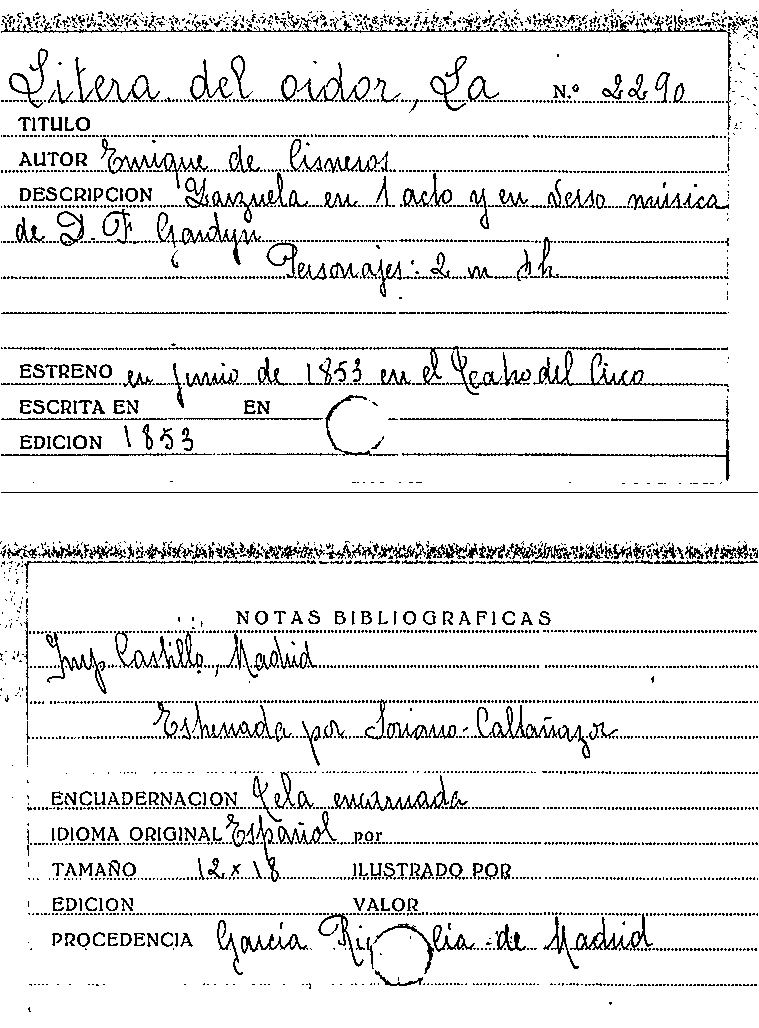 Litera del oidor, La N.º 2290
TITULO
AUTOR Enrique de Cisneros
DESCRIPCION Zarzuela en 1 acto y en verso música
de D. F. Gardyn
Personajes: 2 m h
ESTRENO en junio de 1853 en el Teatro del Circo
ESCRITA EN EN
EDICION 1853
NOTAS BIBLIOGRAFICAS
Imp. Castillo, Madrid
Estrenada por Soriano-Caltañazor
ENCUADERNACION Tela encarnada
IDIOMA ORIGINAL Español por
TAMAÑO 12 x 18 ILUSTRADO POR
EDICION VALOR
PROCEDENCIA García de Madrid